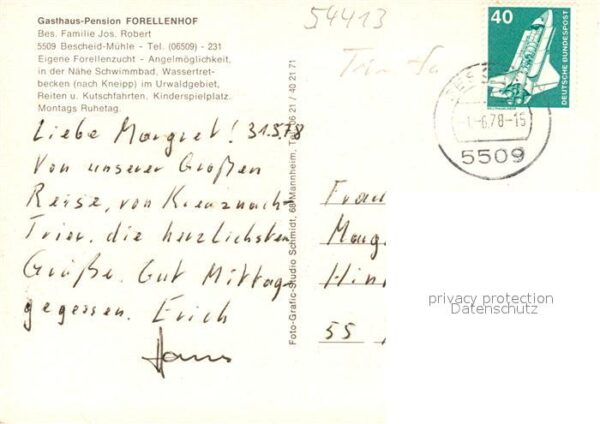 Gasthaus-Pension FORELLENHOF
Bes. Familie Jos. Robert
5509 Bescheid-Mühle - Tel. (06509) - 231
Eigene Forellenzucht - Angelmöglichkeit,
in der Nähe Schwimmbad, Wassertret-
becken (nach Kneipp) im Urwaldgebiet,
Reiten u. Kutschfahrten, Kinderspielplatz.
Montags Ruhetag.
54413
40
DEUTSCHE BUNDESPOST
-6.78-15
5509
Liebe Margret! 31.5.78
Von unserer Großen
Reise, von Kreuznach-
Trier, die herzlichsten
Grüße. Gut Mittag-
gegessen. Erich
Hans
Foto-Grafic-Studio Schmidt, 68 Mannheim, Tel. 06 21 / 40 21 71
Frau
Marg
Hin
55
privacy protection
Datenschutz